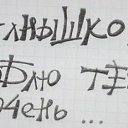 ЛНЫШКО
БЛЮ ТЕ
ОЧЕНЬ ...